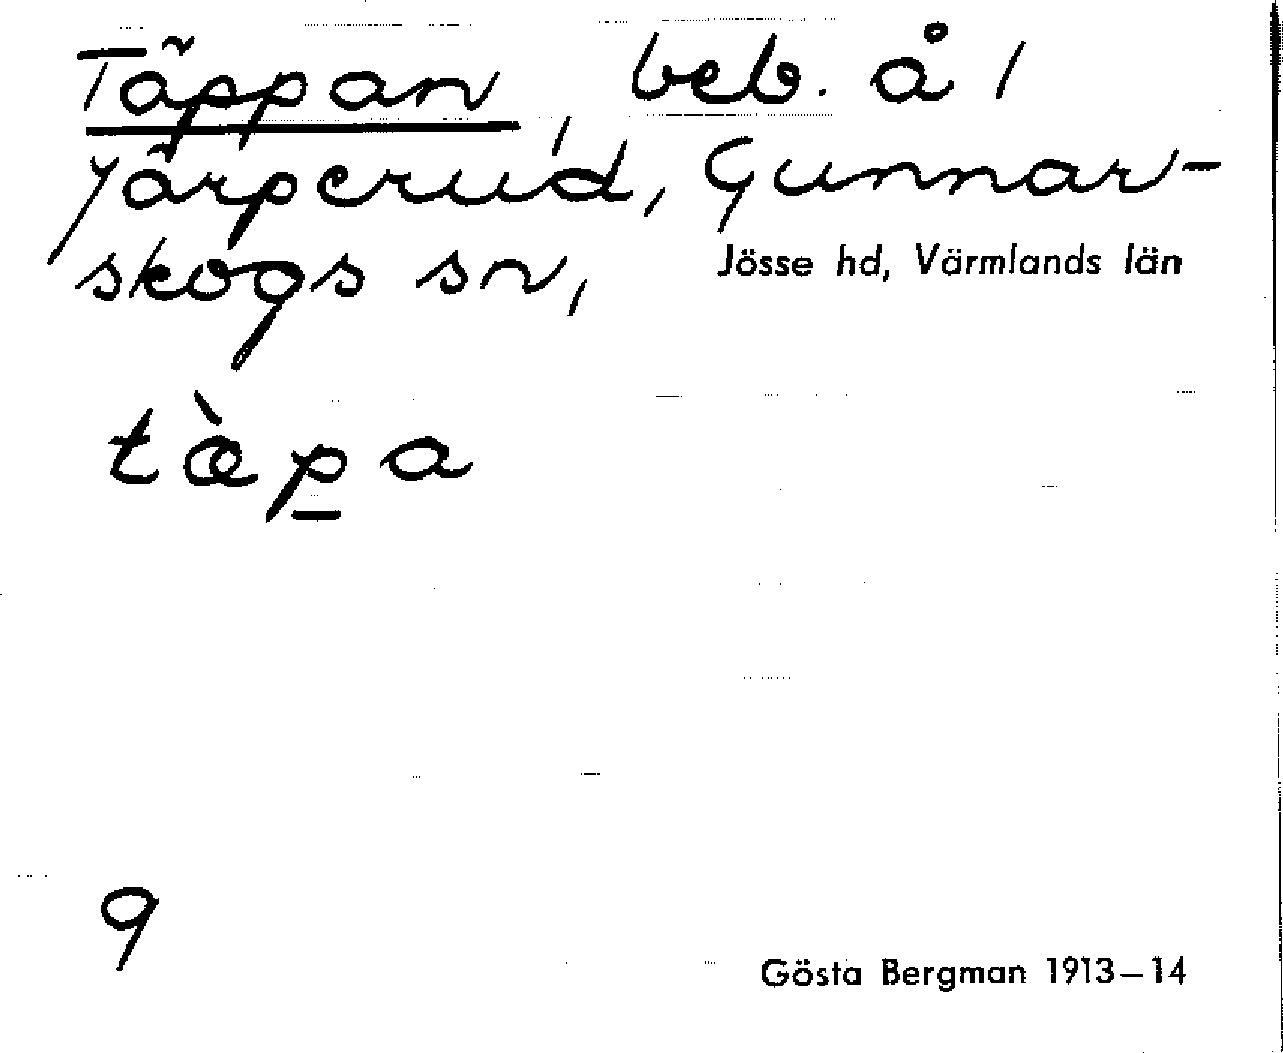 Täppan, beb. å 1
Järperud, Gunnar-
skogs sn, Jösse hd, Värmlands län
tæ̀p̲a
9
Gösta Bergman 1913–14